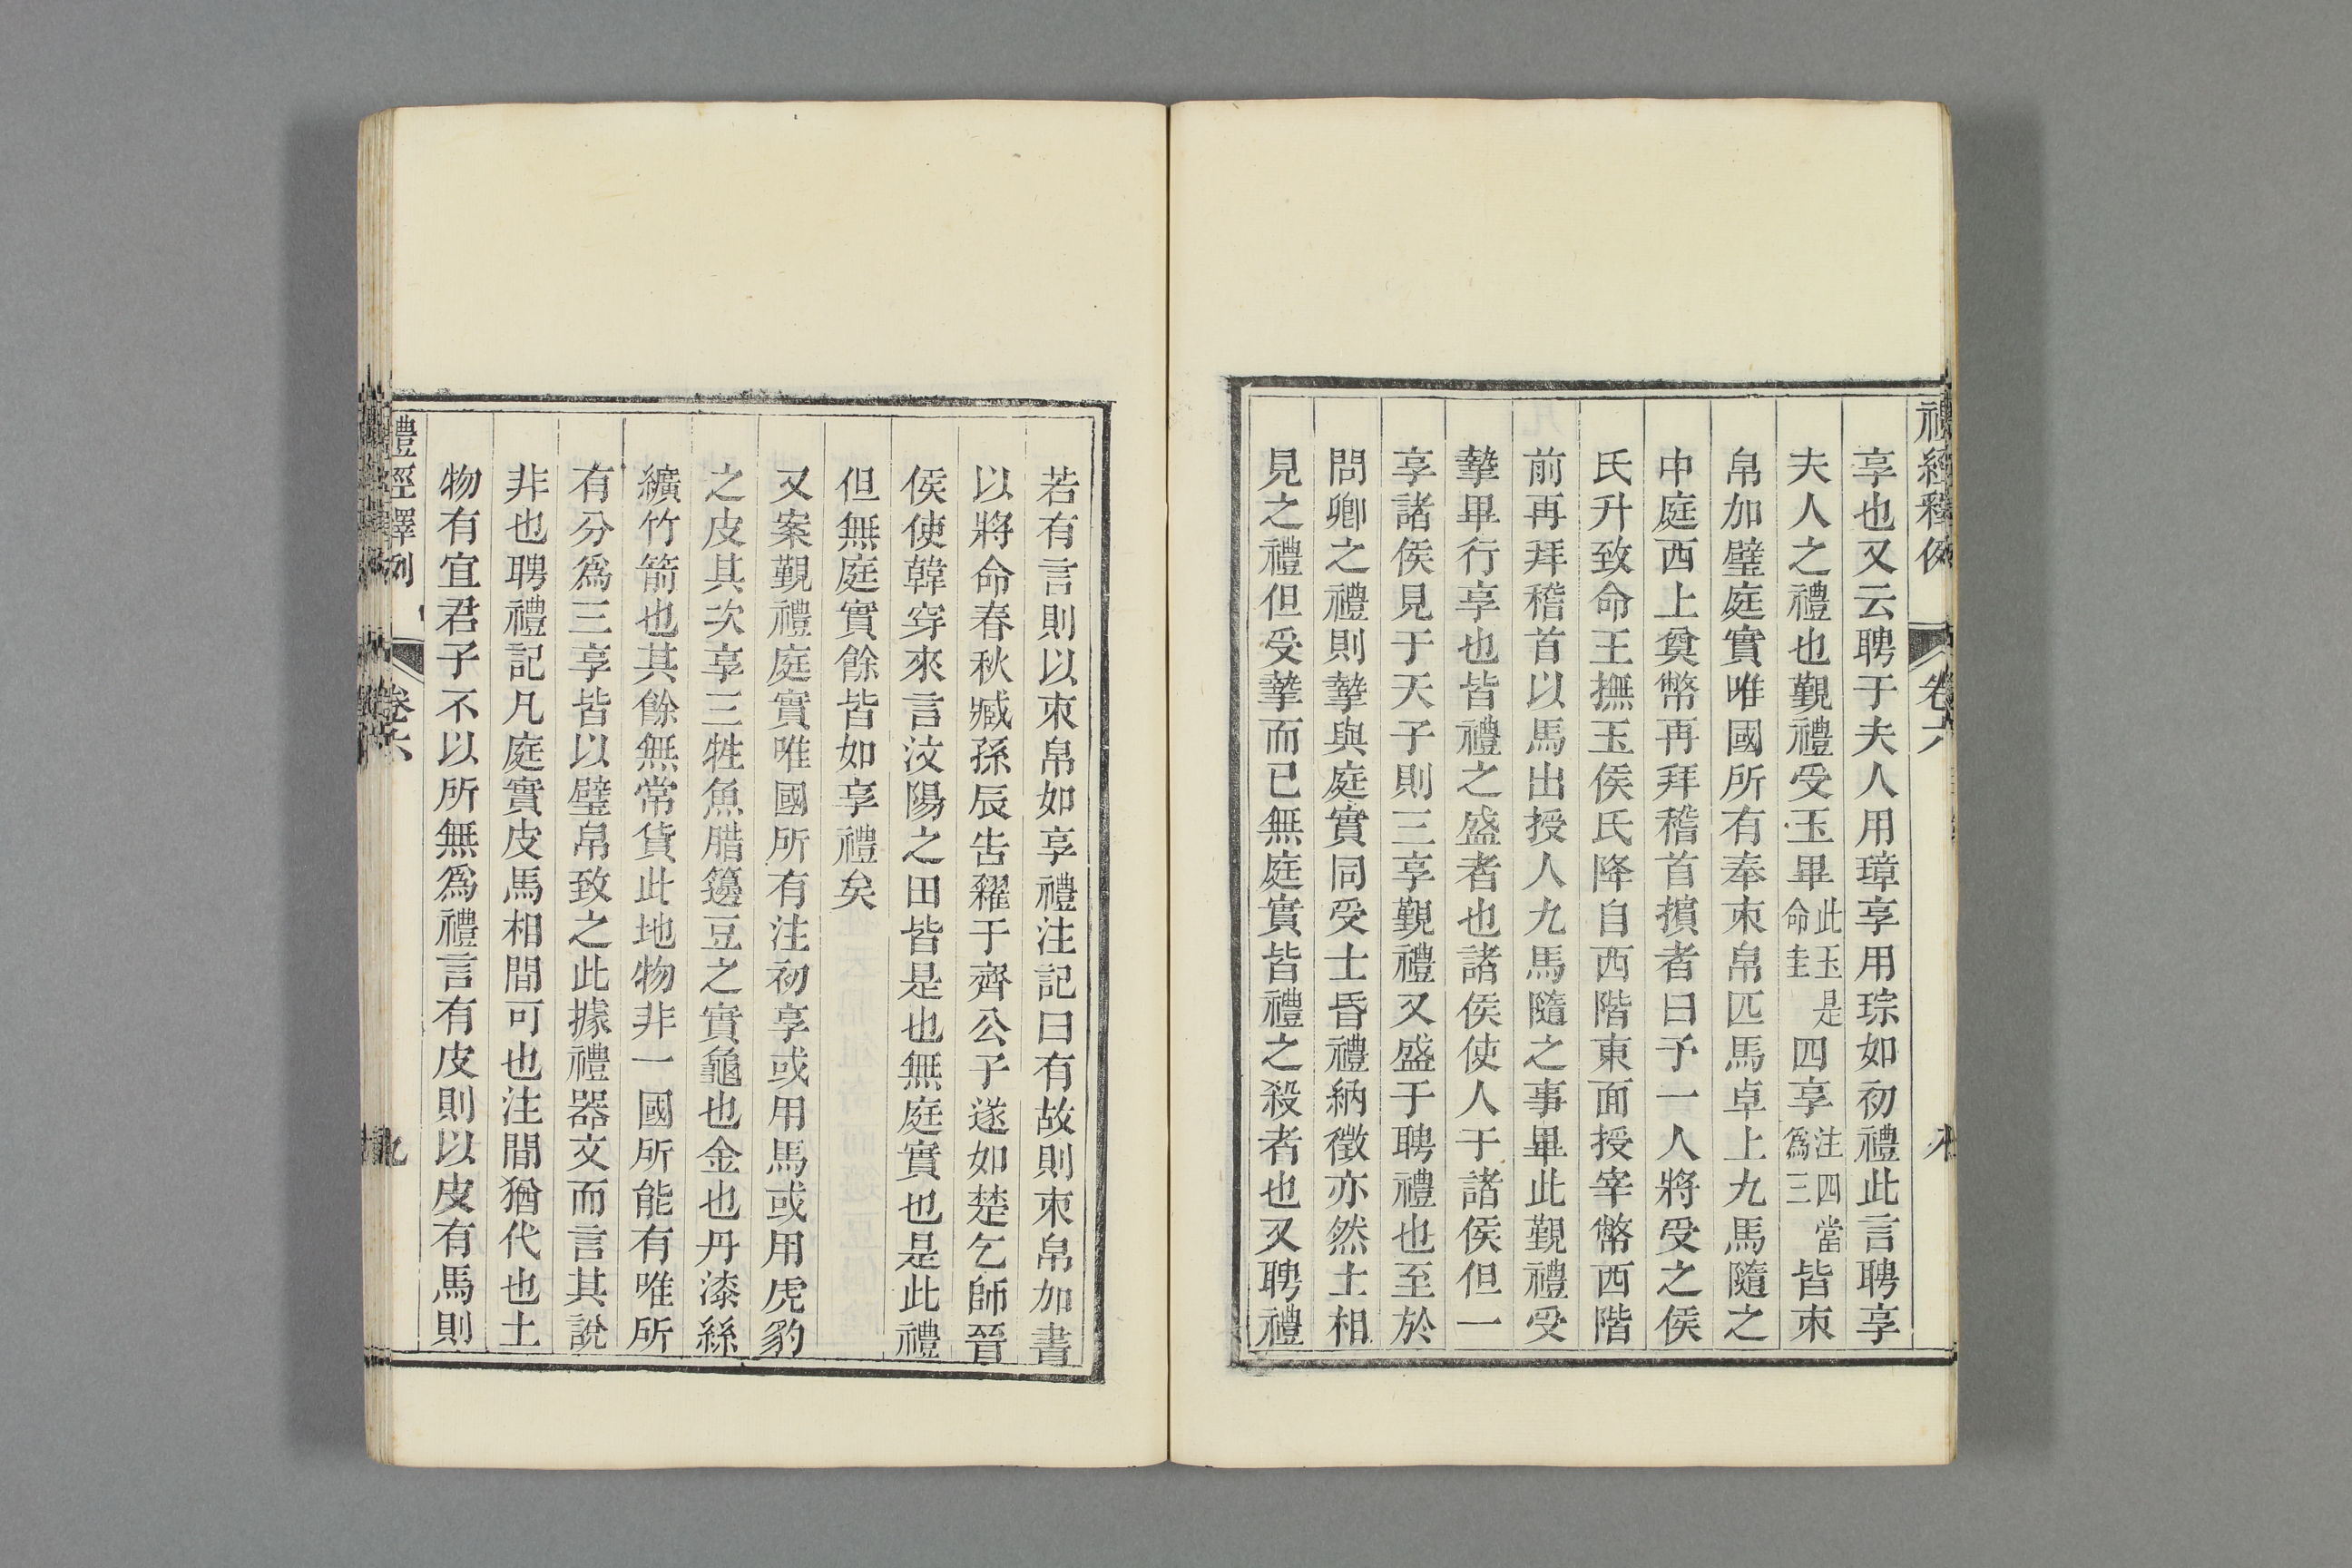 禮經釋例
卷六
享也又云聘于夫人用璋享用琮如初禮此言聘享
夫人之禮也覲禮受玉畢此玉是命圭四享注四當為三皆束
帛加璧庭實唯國所有奉束帛匹馬卓上九馬隨之
中庭西上奠幣再拜稽首擯者曰予一人將受之侯
氏升致命王撫玉侯氏降自西階東面授宰幣西階
前再拜稽首以馬出授人九馬隨之事畢此覲禮受
摯畢行享也皆禮之盛者也諸侯使人于諸侯但一
享諸侯見于天子則三享覲禮又盛于聘禮也至於
問卿之禮則摯與庭實同受士昏禮納徵亦然士相
見之禮但受摯而已無庭實皆禮之殺者也又聘禮
若有言則以束帛如享禮注記曰有故則束帛加書
以將命春秋臧孫辰告糴于齊公子遂如楚乞師晉
侯使韓穿來言汶陽之田皆是也無庭實也是此禮
但無庭實餘皆如享禮矣
又案覲禮庭實唯國所有注初享或用馬或用虎豹
之皮其次享三牲魚腊籩豆之實龜也金也丹漆絲
纊竹箭也其餘無常貨此地物非一國所能有唯所
有分為三享皆以璧帛致之此據禮器文而言其說
非也聘禮記凡庭實皮馬相間可也注間猶代也土
物有宜君子不以所無為禮言有皮則以皮有馬則
禮經釋例
卷六
九